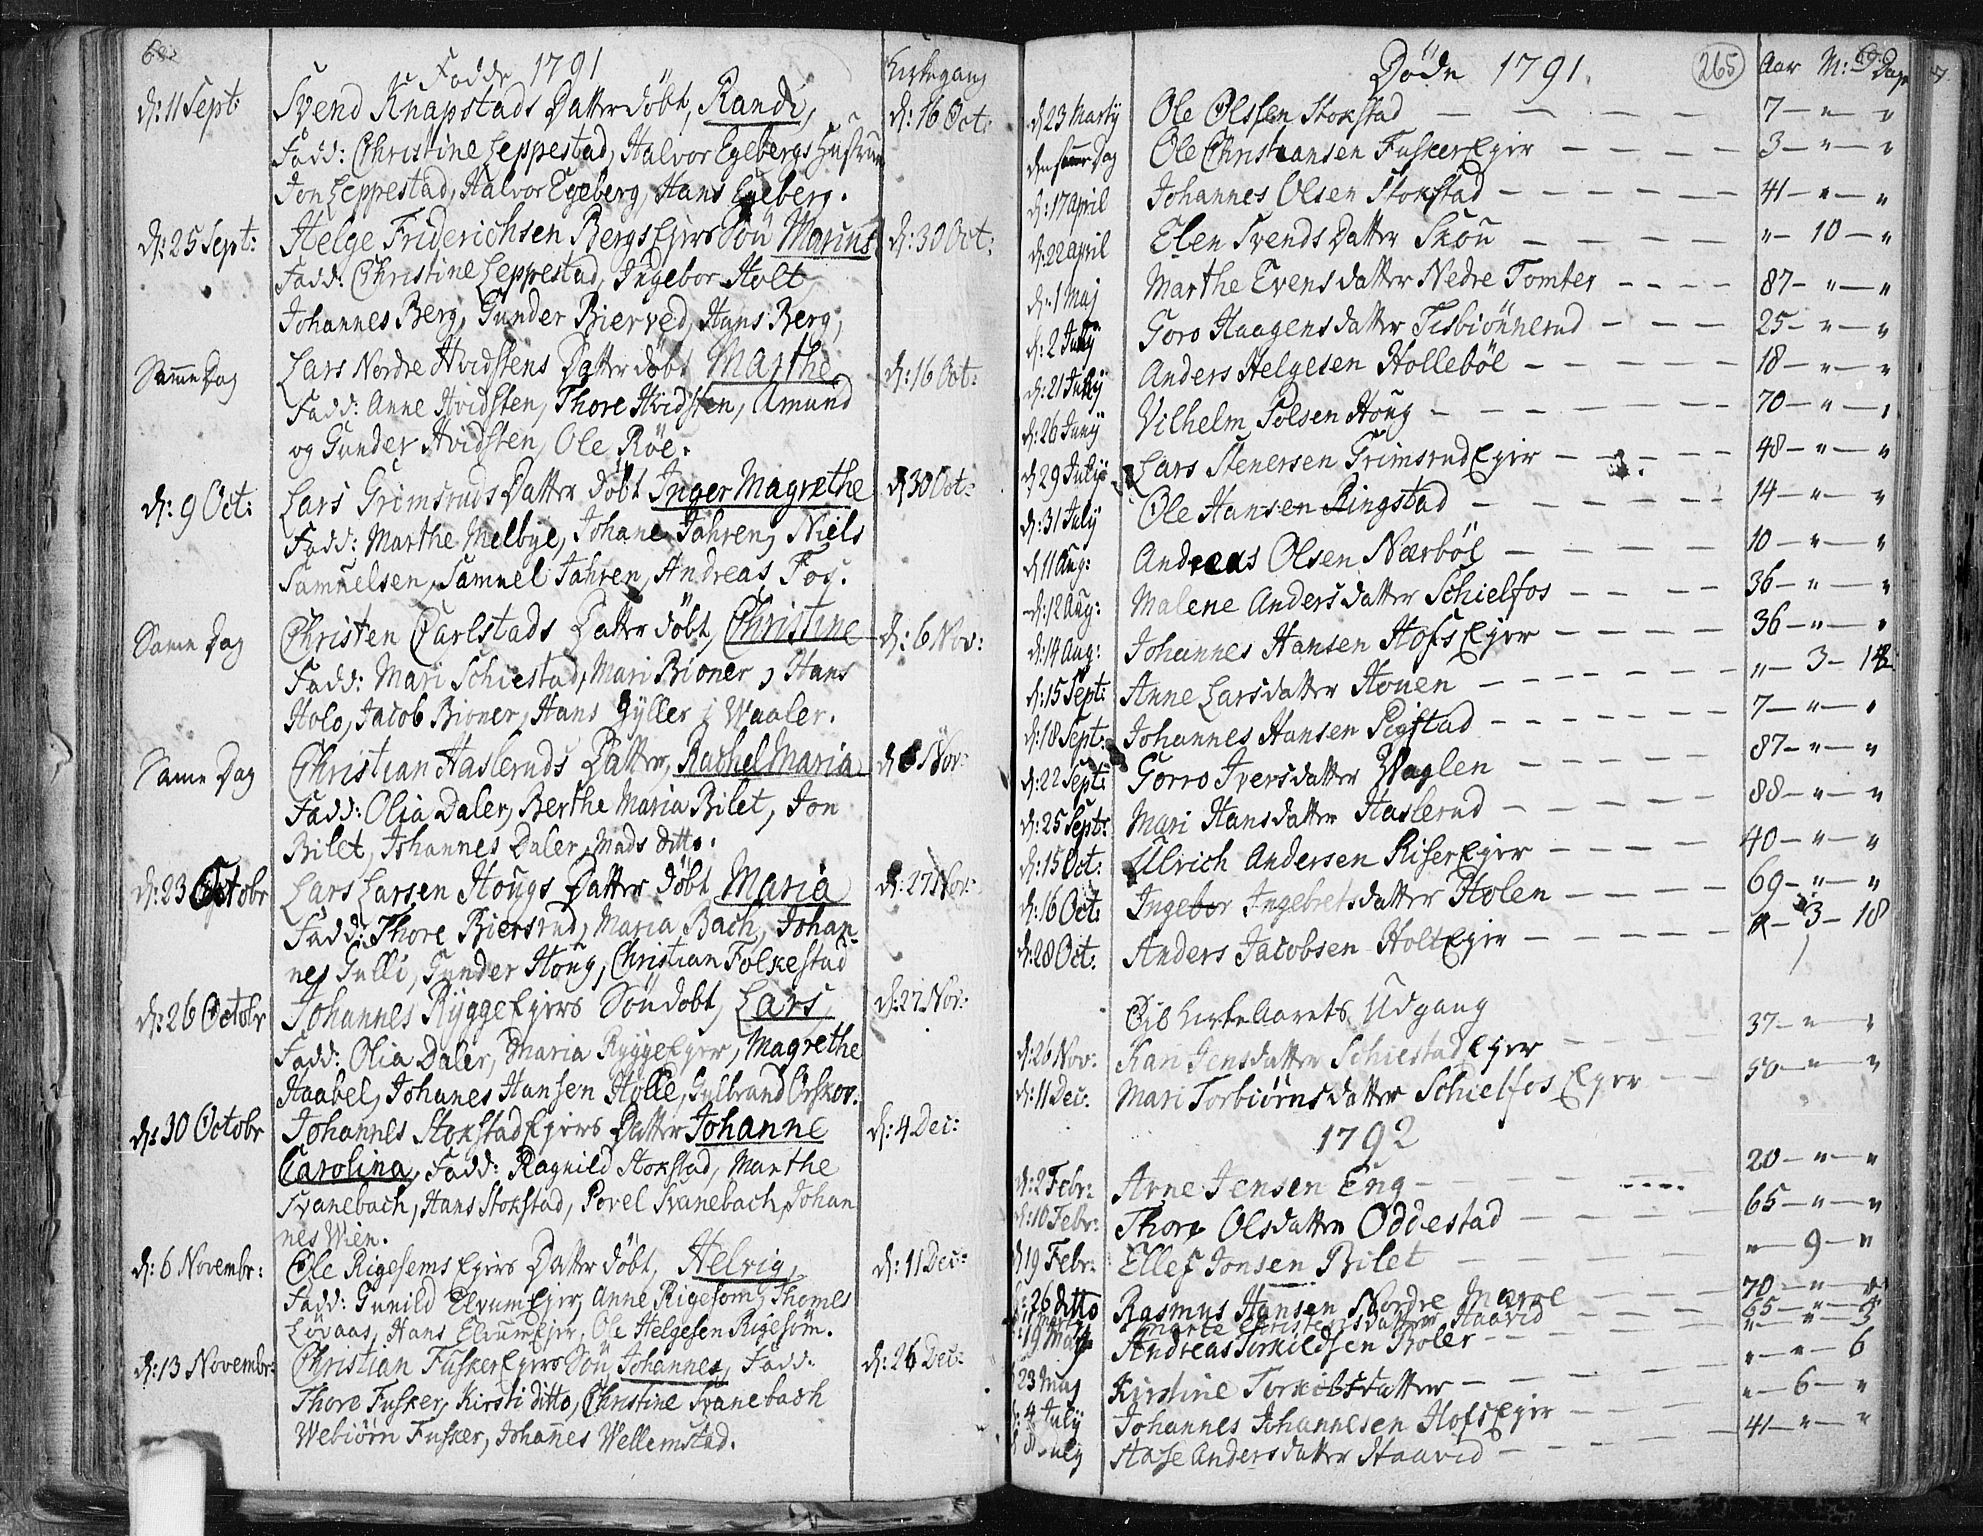 Fødde 1791
Kirkegang
d: 11 Sept:
Svend Knapstads Datter døbt, Randi,
d: 16 Oct:
Fadd: Christine Leppestad, Halvor Egebergs Hustrue
Jon Leppestad, Halvor Egeberg, Hans Egeberg.
d: 25 Sept:
Helge Friderichsen Bergs Ejers Søn Marius
d: 30 Oct:
Fadd: Christine Leppestad, Ingebor Holt
Johannes Berg, Gunder Bierved, Hans Berg,
Samme Dag
Lars Nordre Hvidstens Datter døbt Marthe
d: 16 Oct:
Fadd: Anne Hvidsten, Thore Hvidsten, Amund
og Gunder Hvidsten, Ole Røe.
d: 9 Oct:
Lars Grimsruds Datter døbt Inger Magrethe
d 30 Oct:
Fadd: Marthe Melbye, Johane Jahren, Niels
Samuelsen, Samuel Jahren, Andreas Fos.
Same Dag
Christen Carlstads Datter døbt, Christine
d: 6 Nov:
Fadd: Mari Schiestad, Mari Bioner, Hans
Holo, Jacob Bioner, Hans Gyller i Waaler.
Same Dag
Christian Hasleruds Datter, Rachel Maria
d 6 Nov:
Fadd: Olia Daler, Berthe Maria Bilet, Jon
Bilet, Johannes Daler, Mads ditto.
d: 23 Octobr
Lars Larsen Hougs Datter døbt Maria
d: 27 Nov:
Fadd: Thore Biersrud, Maria Bach, Johan-
nes Gulli, Gunder Houg, Christian Folkestad
d: 26 Octobr
Johannes Rygge Ejers Søn døbt, Lars,
d: 27 Nov:
Fadd: Olia Daler, Maria Rygge Ejer, Magrethe
Haabel, Johanes Hansen Holle, Gulbrand Orskov.
d: 30 Octobr
Johannes Stokstad Ejers Datter Johanne
d: 4 Dec:
Carolina, Fadd: Ragnild Stokstad, Marthe
Svanebach, Hans Stokstad, Povel Svanebach, Johan
nes Wien.
d: 6 Novembr:
Ole Rigesems Ejers Datter døbt, Helvig,
d: 11 Dec:
Fadd: Gunild Elvum Ejer, Anne Rigesom, Thomes
Løvaas, Hans Elvum Ejer, Ole Helgesen Rigesom.
d: 13 Novembr:
Christian Fusker Ejers Søn, Johannes, Fadd:
d: 26 Dec:
Thore Fusker, Kirsti ditto, Christine Svanebach
Webiørn Fusker, Johanes Wellemstad.
Døde 1791.
265
Aar M: Dage
d 23 Martij Ole Olssen Stokstad — 7 — " "
den samme Dag Ole Christiansen Fusker Ejer — 3 — " — "
d: 17 April Johannes Olsen Stokstad — 41 — " — "
d: 22 April Elen Svends Datter Skou — " — 10 — "
d: 1 Maj Marthe Evensdatter Nedre Tomter — 87 — " — "
d: 2 July Goro Haagensdatter Tisbiønnerud — 25 — " — "
d: 21 July Anders Helgesen Hollebøl — 18 — " — "
d: 26 Juny Vilhelm Polsen Houg — 70 — " — "
d 29 July Lars Stenersen Grimsrud Ejer — 48 — " — "
d: 31 July Ole Hansen Ringstad — 14 — " — "
d 11 Aug: Andreas Olsen Nærbøl — 10 — " — "
d: 12 Aug: Malene Andersdatter Schielfos — 36 — " — "
d: 14 Aug: Johannes Hansen Hofs Ejer — 36 — " — "
d: 15 Sept: Anne Larsdatter Houen — " — 3 — 14
d: 18 Sept: Johannes Hansen Sigstad — 7 — " — "
d: 22 Sept: Gorro Iversdatter Waglen — 87 — " — "
d: 25 Sept: Mari Hansdatter Haslerud — 88 — " — "
d: 15 Oct: Ulrich Andersen Riser Ejer — 40 — " — "
d: 16 Oct: Ingebor Ingebretsdatter Holen — 69 — " — "
d: 28 Oct: Anders Jacobsen Holt Ejer — " — 3 — 18
Udgang
d: 26 Nov: Kari Jensdatter Schiestad Ejer — 37 — " — "
d: 11 Dec. Mari Torbiørnsdatter Schielfos Ejer — 50 — " — "
1792
d: 2 Febr: Arne Jensen Eng — 20 — " — "
d: 10 Febr: Thore Olsdatter Oddestad — 65 — " — "
d 19 Febr: Ellef Jonsen Bilet — " — 9 — "
d: 26 ditto Rasmus Hansen Nordre Marve — 70 — " — "
Marte Christensdatter Haavid — 65 — " — "
19 Maj Andreas Torkildsen Roler — " — " — 3
23 Maj Kirstine Torkilsdatter — " — " — 6
d: 4 July Johannes Johannesen Hofs Ejer — " — 6 — "
d 8 July Aase Andersdatter Haavid — 41 — " — "